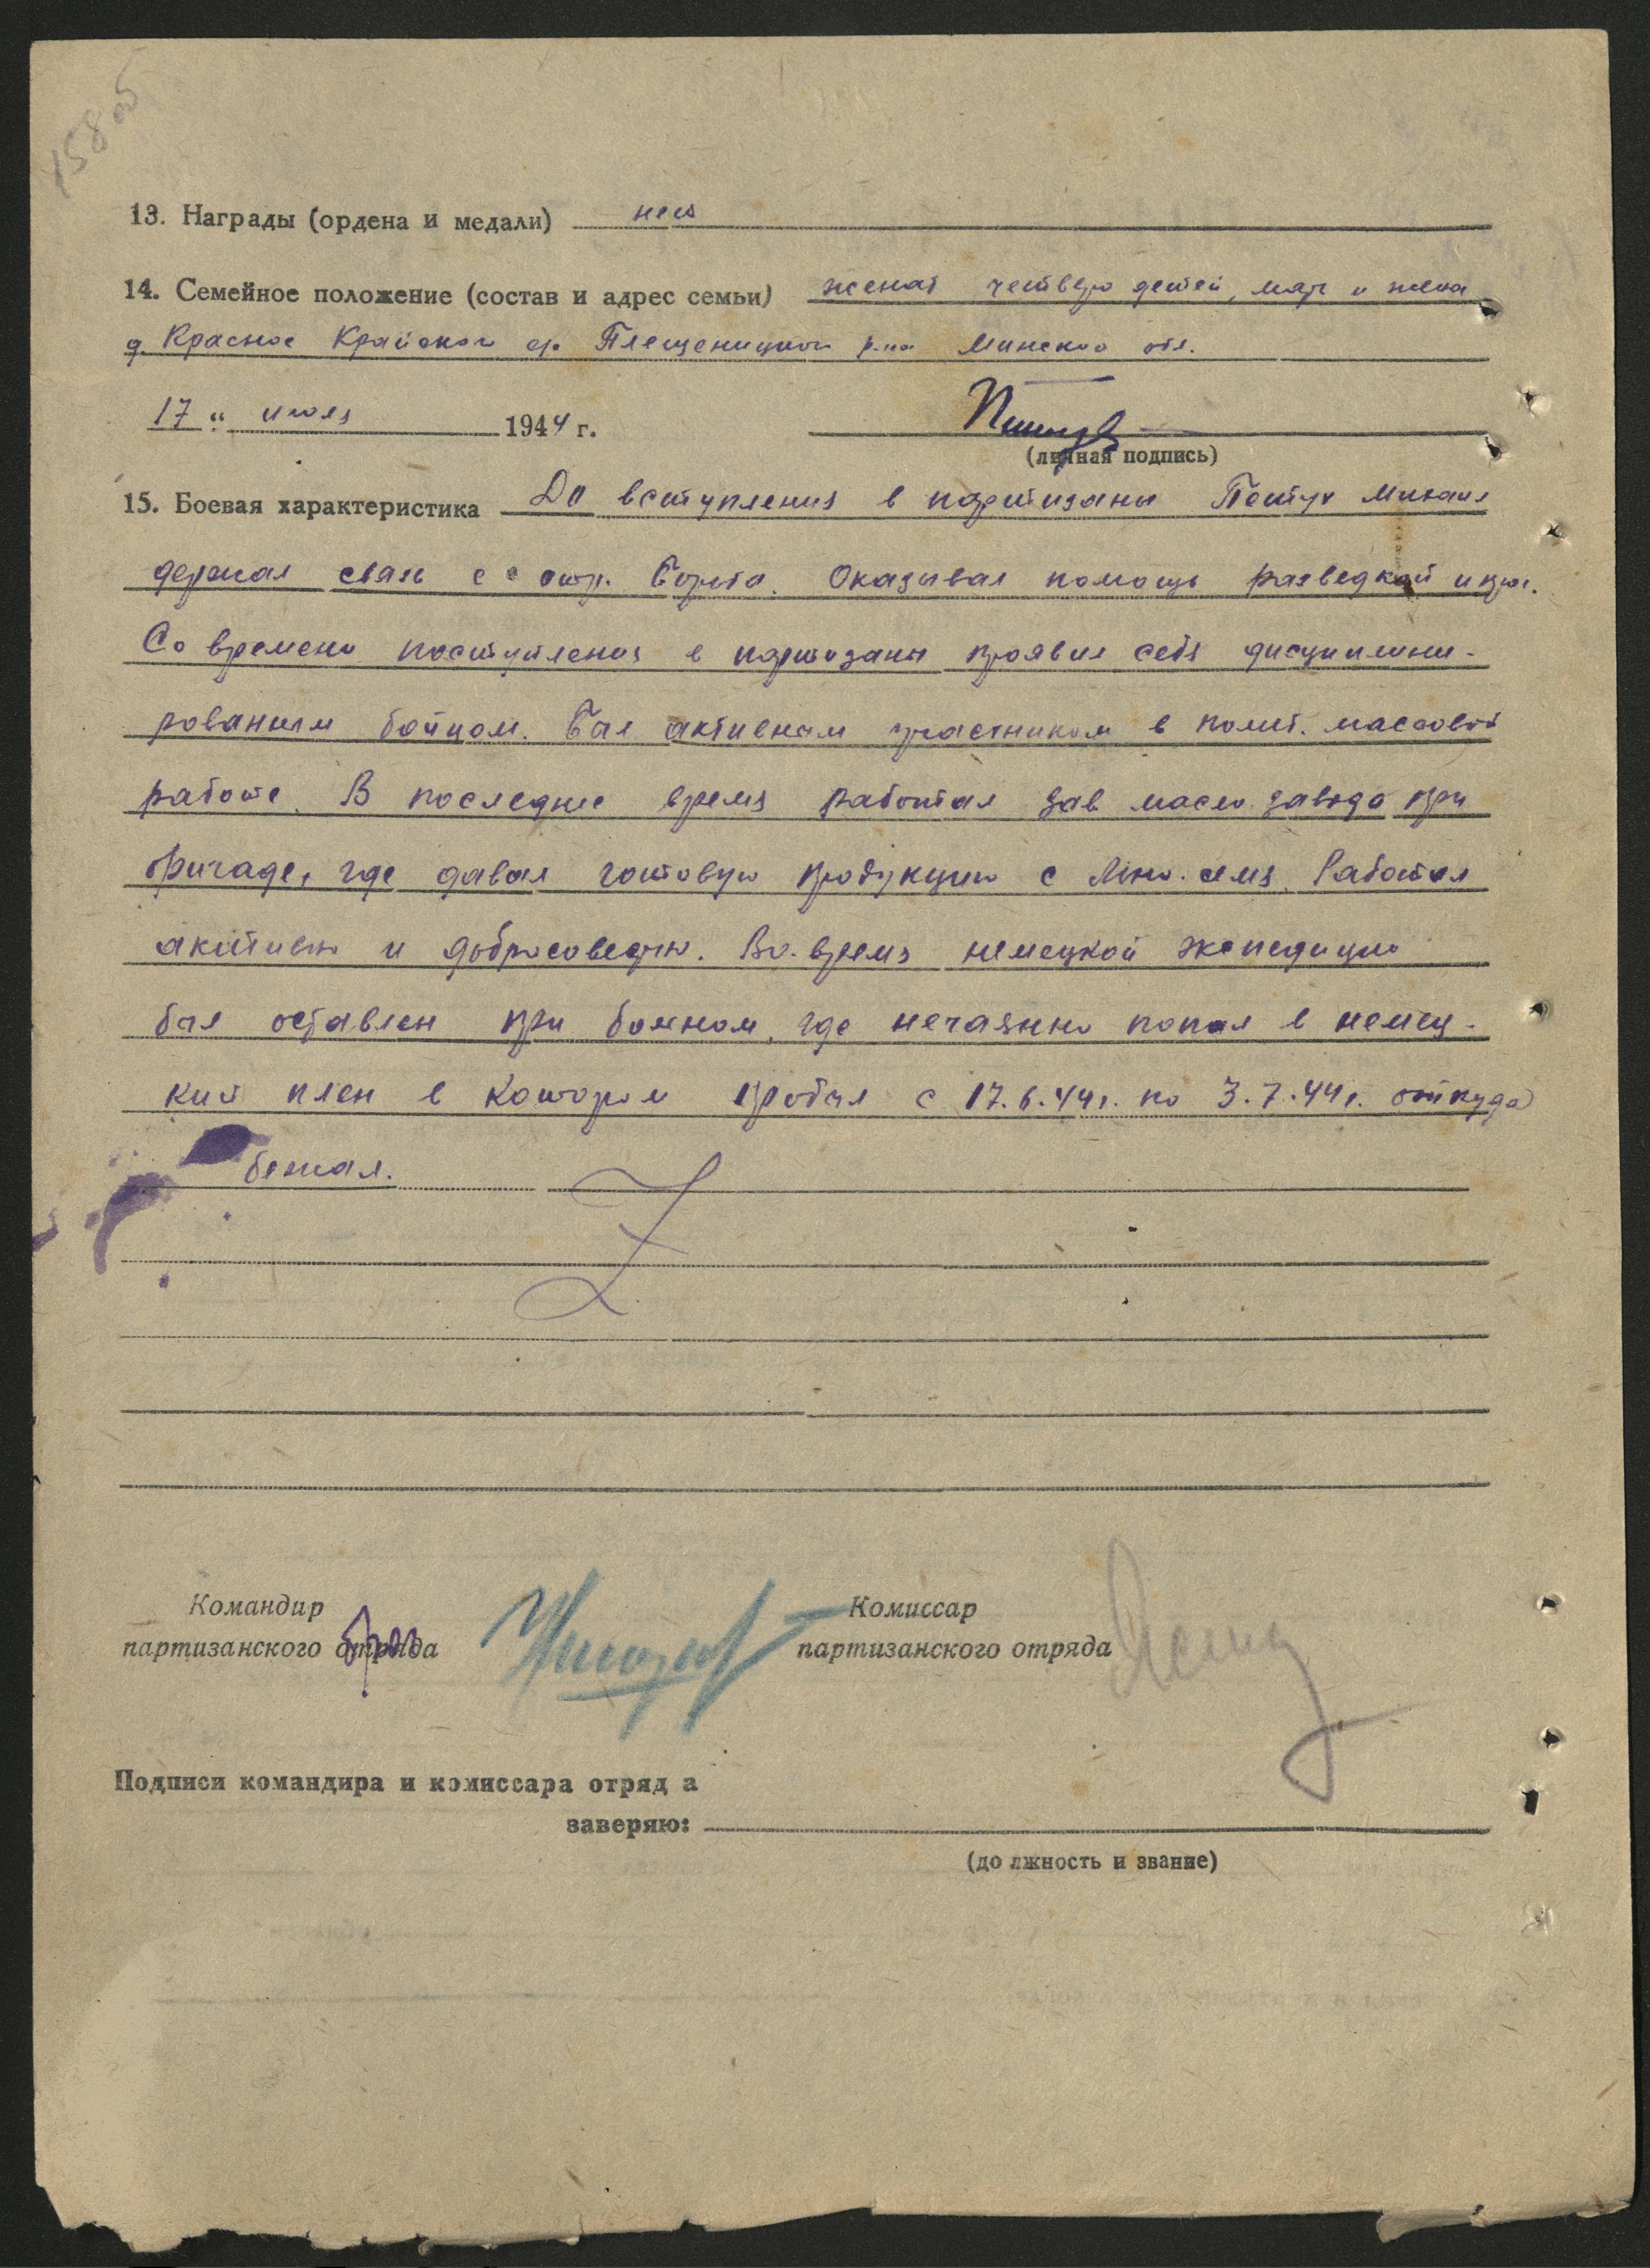 158 об
13. Награды (ордена и медали) нет
14. Семейное положение (состав и адрес семьи) женат четверо детей, мать и жена
д. Красное Крайского с/с Плещеницкого р-на Минской обл.
17 " июля 1944 г.
(личная подпись)
15. Боевая характеристика До вступления в партизаны Петух Михаил
держал связь с отр. Борьба. Оказывал помощь разведкой и др.
Со времени поступления в партизаны проявил себя дисциплини-
рованным бойцом. Был активным участником в полит. массовой
работе. В последнее время работал зав масло. завода при
бригаде, где давал готовую продукцию с Работал
активно и добросовестно. Во. время немецкой экспедиции
был оставлен при больном, где нечаянно попал в немец-
кий плен в котором пробыл с 17.6.44г. по 3.7.44г. откуда
бежал.
Командир
партизанского отряда
Комиссар
партизанского отряда
Подписи командира и комиссара отряд а
заверяю:
(до лжность и звание)